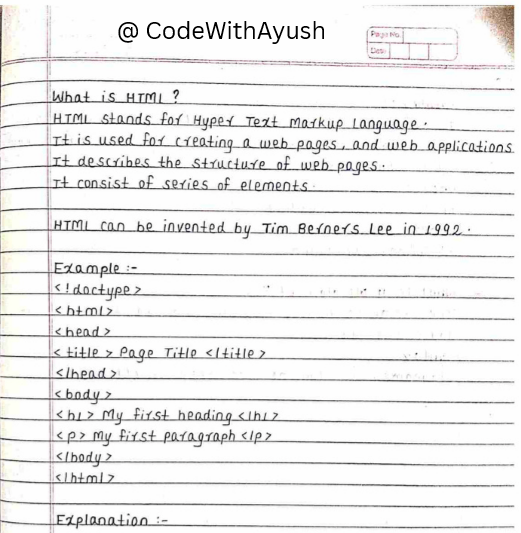 @ CodeWithAyush
Page No.
Date
What is HTML ?
HTML stands for Hyper Text Markup Language.
It is used for creating a web pages, and web applications
It describes the structure of web pages.
It consist of series of elements.
HTML can be invented by Tim Berners Lee in 1992.
Example :-
<!doctype>
<html>
<head>
<title> Page Title </title>
</head>
<body>
<h1> My first heading </h1>
<p> My first paragraph </p>
</body>
</html>
Explanation :-